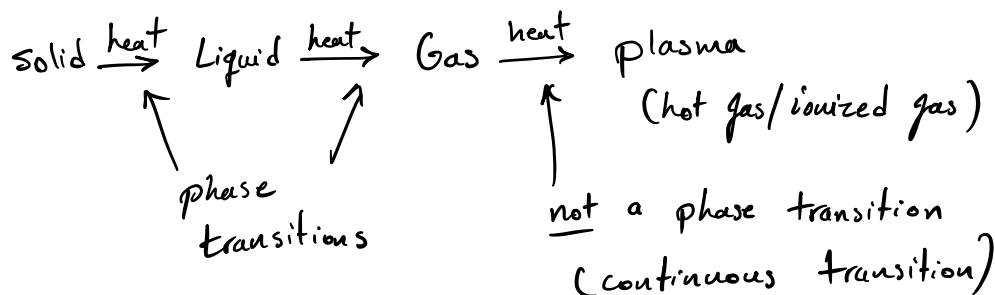 solid heat Liquid heat Gas heat plasma
(hot gas/ionized gas)
phase
transitions
not a phase transition
(continuous transition)